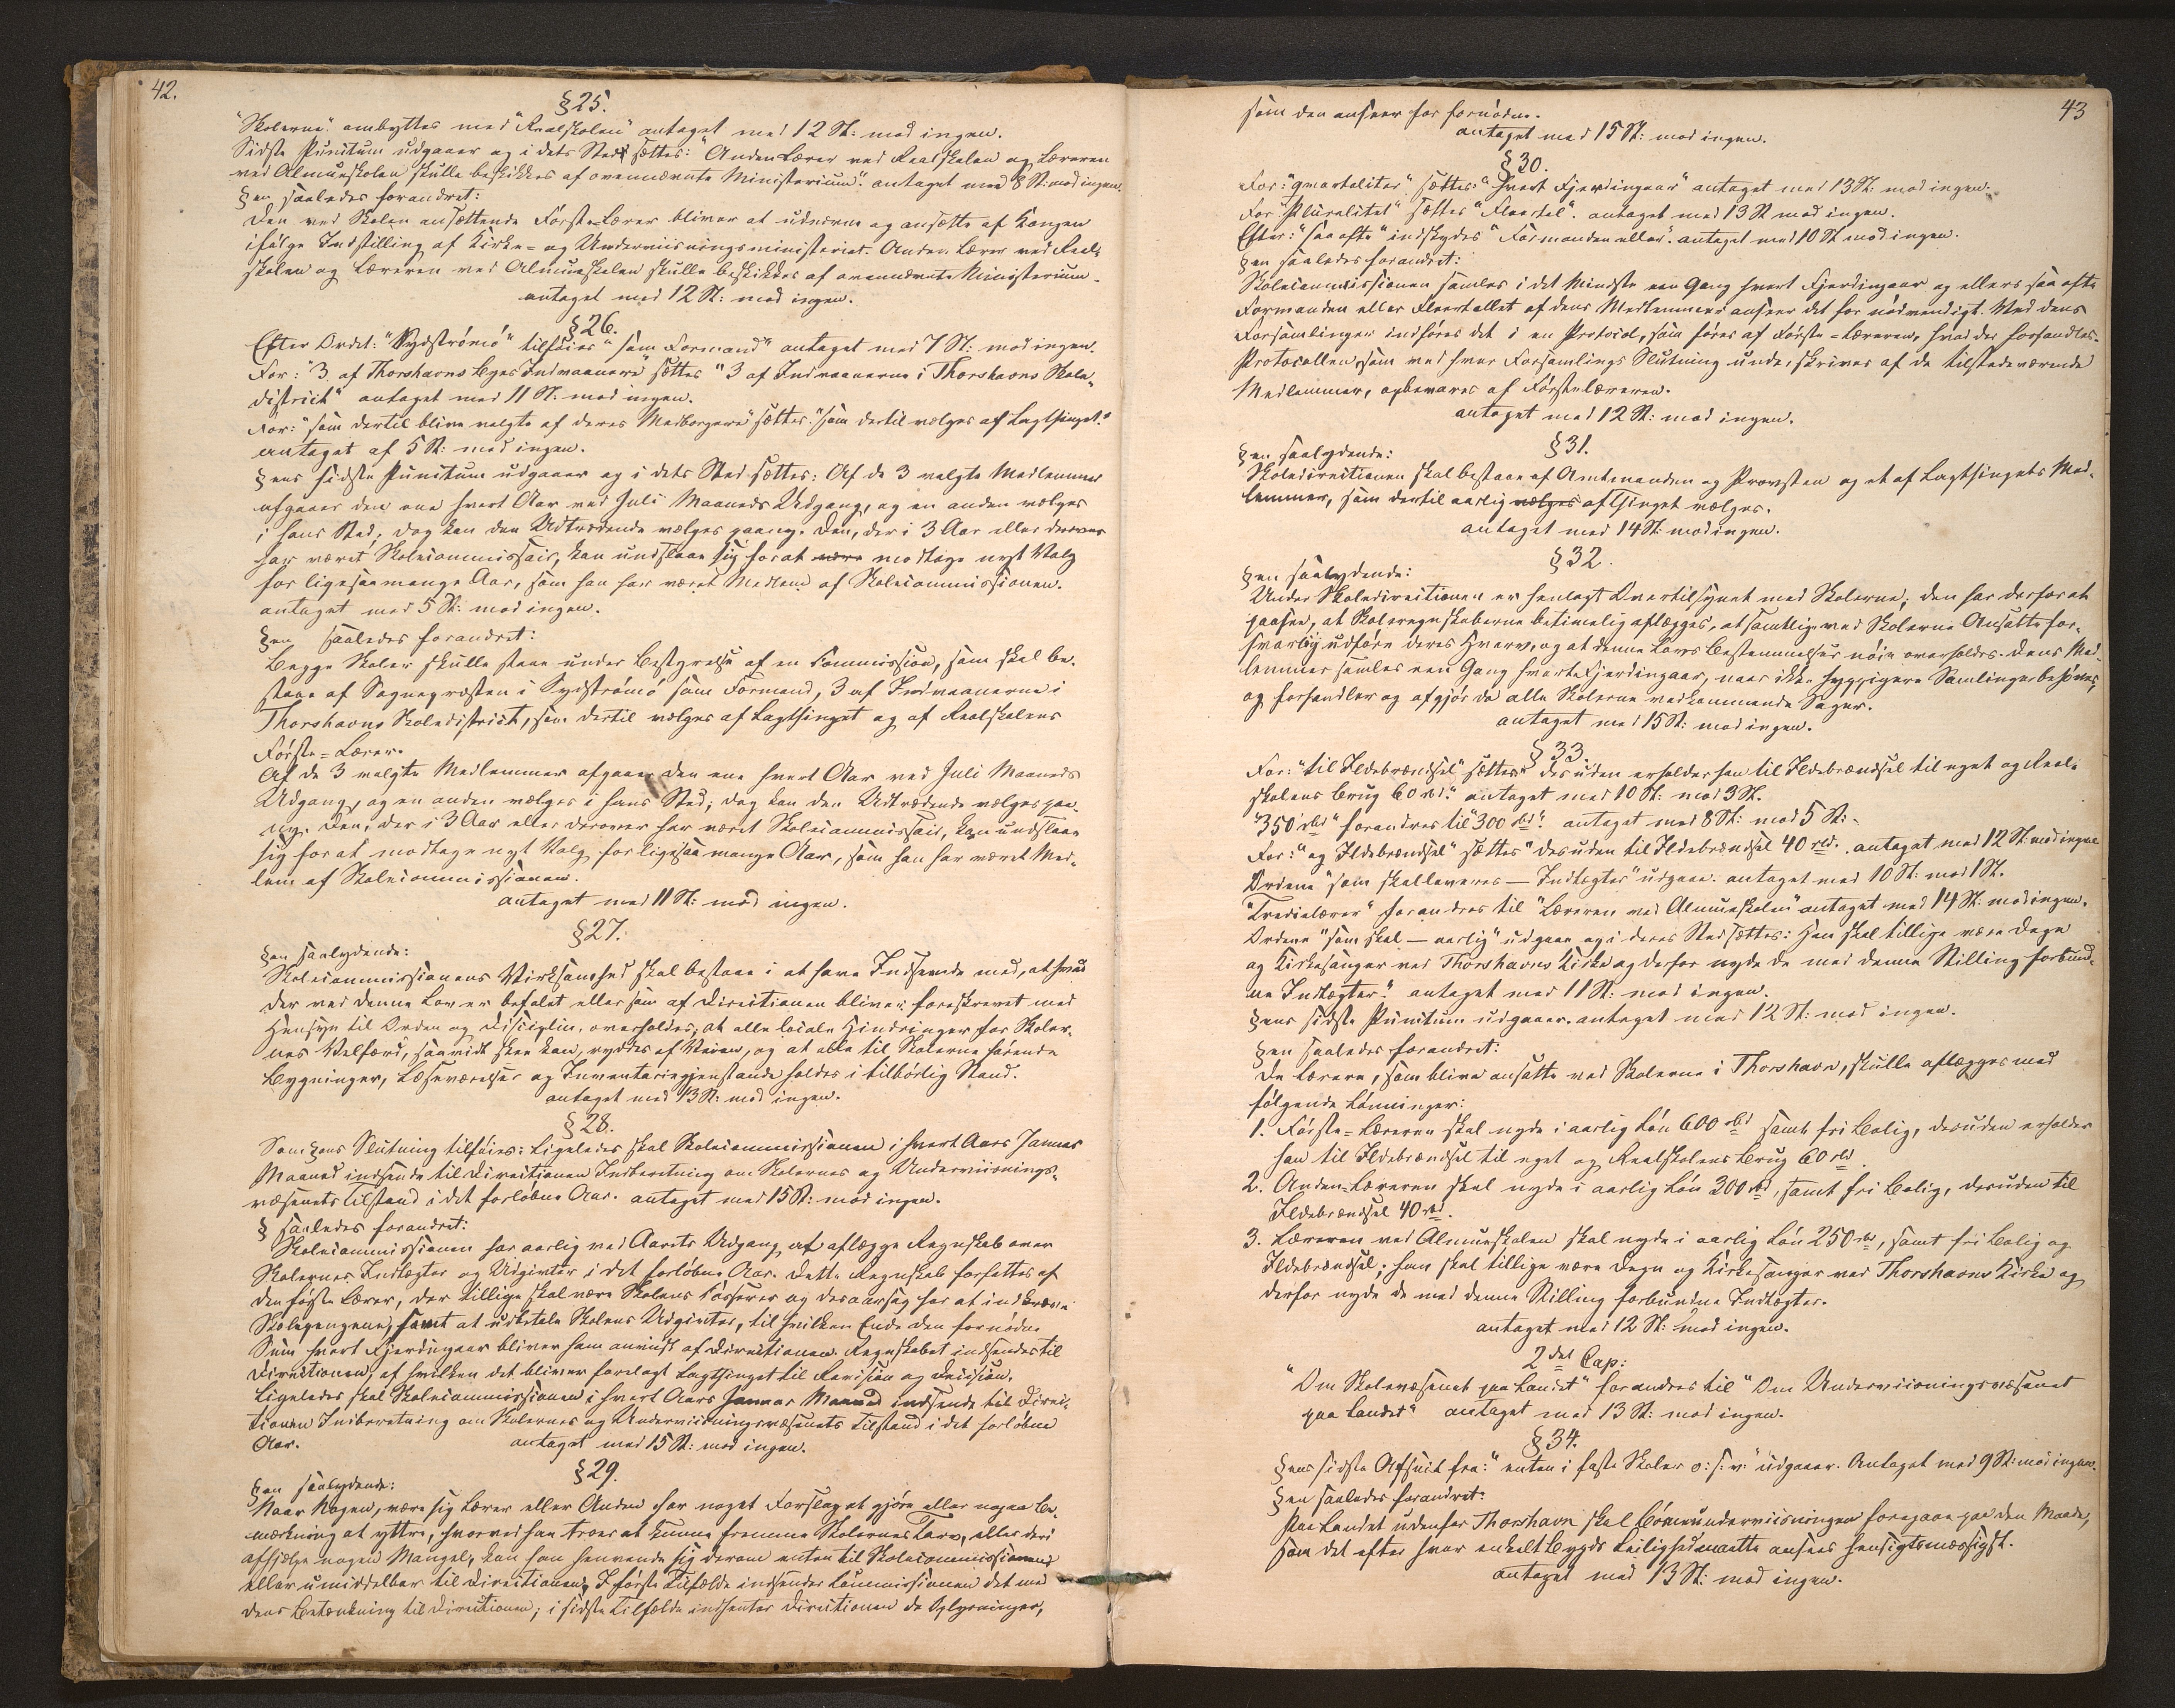 42.
§ 25.
"Skolerne" ombyttes med "Realskolen" antaget med 12 St: mod ingen.
Sidste Punctum udgaaer og i dets Sted sættes: "Anden Lærer ved Realskolen og Læreren
ved Almueskolen skulle beskikkes af ovennævnte Ministerium". antaget med 8 St: mod ingen.
§en saaledes forandret:
Den ved Skolen ansættende Første-Lærer bliver at udnævne og ansætte af Kongen
ifølge Indstilling af Kirke- og Underviisningsministeriet. Anden Lærer ved Real-
skolen og Læreren ved Almueskolen skulle beskikkes af ovennævnte Ministerium.
antaget med 12 St: mod ingen.
§ 26.
Efter Ordet: "Sydströmö" tilføies "som Formand" antaget med 7 St: mod ingen.
For: "3 af Thorshavns Byes Indvaanere" sættes "3 af Indvaanerne i Thorshavns Skole-
district" antaget med 11 St: mod ingen.
For: "som dertil blive valgte af deres Medborgere" sættes: "som dertil vælges af Lagthinget."
antaget af 5 St: mod ingen.
§ens sidste Punctum udgaaer og i dets Sted sættes: Af de 3 valgte Medlemmer
afgaaer den ene hvert Aar ved Juli Maaneds Udgang, og en anden vælges
i hans Sted, dog kan den Udtrædende vælges paany. Den, der i 3 Aar eller derover
har været Skolecommissair, kan undslaae sig for at være modtage nyt Valg
for ligesaamange Aar, som han har været Medlem af Skolecommissionen.
antaget med 5 St: mod ingen.
§en saaledes forandret:
Begge Skoler skulle staae under Bestyrelse af en Commission, som skal be-
staae af Sognepræsten i Sydströmö som Formand, 3 af Indvaanerne i
Thorshavns Skoledistrict, som dertil vælges af Lagthinget og af Realskolens
Første-Lærer.
Af de 3 valgte Medlemmer afgaaer den ene hvert Aar ved Juli Maaneds
Udgang, og en anden vælges i hans Sted; dog kan den Udtrædende vælges paa-
ny. Den, der i 3 Aar eller derover har været Skolecommissair, kan undslaae
sig for at modtage nyt Valg for ligesaa mange Aar, som han har været Med-
lem af Skolecommissionen.
antaget med 11 St: mod ingen.
§ 27.
§en saalydende:
Skolecommissionens Virksomhed skal bestaae i at have Indseende med, at hvad
der ved denne Lov er befalet eller som af Directionen bliver foreskrevet med
Hensyn til Orden og Disciplin, overholdes, at alle locale Hindringer for Skoler-
nes Velfærd, saavidt skee kan, ryddes af Veien, og at alle til Skolerne hørende
Bygninger, Læseværelser og Inventariegjenstande holdes i tilbørlig Stand.
antaget med 13 St: mod ingen.
§ 28.
Som §ens Slutning tilføies: Ligeledes skal Skolecommissionen i hvert Aars Januar
Maaned indsende til Directionen Indberetning om Skolernes og Underviisnings-
væsenets Tilstand i det forløbne Aar. antaget med 15 St: mod ingen.
§ saaledes forandret:
Skolecommissionen har aarlig ved Aarets Udgang at aflægge Regnskab over
Skolernes Indtægter og Udgivter i det forløbne Aar. Dette Regnskab forfattes af
den første Lærer, der tillige skal være Skolens Casserer og desaarsag har at indkræve
Skolepengene, samt at udbetale Skolens Udgivter, til hvilken Ende den fornødne
Sum hvert Fjerdingaar bliver ham anviist af Directionen. Regnskabet indsendes til
Directionen, af hvilken det bliver forelagt Lagthinget til Revision og Decision.
Ligeledes skal Skolecommissionen i hvert Aars Januar Maaned indsende til Direc-
tionen Indberetning om Skolernes og Underviisningsvæsenets Tilstand i det forløbne
Aar. antaget med 15 St: mod ingen.
§ 29.
§en saalydende:
Naar Nogen, være sig Lærer eller Anden har noget Forslag at gjøre eller nogen Be-
mærkning at yttre, hvorved han troer at kunne fremme Skolernes Tarv, eller deri
afhjælpe nogen Mangel, kan han henvende sig derom enten til Skolecommissionen
eller umiddelbar til Directionen. I første Tilfælde indsender Commissionen det med
dens Betænkning til Directionen; i sidste Tilfælde indhenter Directionen de Oplysninger,
43
som den anseer for fornødne.
antaget med 15 St: mod ingen.
§ 30.
For: "qvartaliter" sættes: "hvert Fjerdingaar" antaget med 13 St: mod ingen.
For "Pluralitet" sættes "Fleertal". antaget med 13 St mod ingen.
Efter: "saa ofte" indskydes "Formanden eller". antaget med 10 St mod ingen.
§en saaledes forandret:
Skolecommissionen samles i det Mindste een Gang hvert Fjerdingaar og ellers saa ofte
Formanden eller Fleertallet af dens Medlemmer anseer det for nødvendigt. Ved dens
Forsamlinger indføres det i en Protocol, som føres af Første-Læreren, hvad der forhandles.
Protocollen, som ved hver Forsamlings Slutning underskrives af de tilstedeværende
Medlemmer, opbevares af Førstelæreren.
antaget med 12 St: mod ingen.
§ 31.
§en saalydende:
Skoledirectionen skal bestaae af Amtmanden og Provsten og et af Lagthingets Med-
lemmer, som dertil aarlig vælges af Thinget vælges.
antaget med 14 St: mod ingen.
§ 32.
§en saalydende:
Under Skoledirectionen er henlagt Overtilsynet med Skolerne; den har derfor at
paasee, at Skoleregnskaberne betimelig aflægges, at samtlige ved Skolerne Ansatte for-
svarlig udføre deres Hverv, og at denne Lovs Bestemmelser nøie overholdes. Dens Med-
lemmer samles een Gang hvert Fjerdingaar, naar ikke hyppigere Samlinger behøves,
og forhandler og afgjør da alle Skolerne vedkommende Sager.
antaget med 15 St: mod ingen.
§ 33.
For: "til Ildebrændsel" sættes "desuden erholder han til Ildebrændsel til eget og Real-
skolens Brug 60 rd." antaget med 10 St: mod 3 St.
"350 rbd" forandres til "300 rbd". antaget med 8 St: mod 5 St:
For: "og Ildebrændsel" sættes "desuden til Ildebrændsel 40 rbd. antaget med 12 St mod ingen
Ordene "som skal leveres — Indtægter" udgaae. antaget med 10 St: mod 1 St.
"Tredielærer" forandres til "Læreren ved Almueskolen" antaget med 14 St: mod ingen.
Ordene "som skal — aarlig" udgaae og i deres Sted sættes: Han skal tillige være Degn
og Kirkesanger ved Thorshavns Kirke og derfor nyde de med denne Stilling forbund-
ne Indtægter." antaget med 11 St: mod ingen.
§ens sidste Punctum udgaaer. antaget med 12 St: mod ingen.
§en saaledes forandret:
De Lærere, som blive ansatte ved Skolerne i Thorshavn, skulle aflægges med
følgende Lønninger:
1. Første-Læreren skal nyde i aarlig Løn 600 rbd samt fri Bolig, desuden erholder
han til Ildebrændsel til eget og Realskolens Brug 60 rbd.
2. Anden-Læreren skal nyde i aarlig Løn 300 rbd, samt fri Bolig, desuden til
Ildebrændsel 40 rbd.
3. Læreren ved Almueskolen skal nyde i aarlig Løn 250 rbd, samt fri Bolig og
Ildebrændsel; han skal tillige være Degn og Kirkesanger ved Thorshavns Kirke og
derfor nyde de med denne Stilling forbundne Indtægter.
antaget med 12 St: mod ingen.
2det Cap:
"Om Skolevæsenet paa Landet" forandres til "Om Underviisningsvæsenet
paa Landet" antaget med 13 St: mod ingen.
§ 34.
§ens sidste Afsnit fra: "enten i faste Skoler o: s: v:" udgaaer. Antaget med 9 St: mod ingen.
§en saaledes forandret:
Paa Landet udenfor Thorshavn skal Børneunderviisningen foregaae paa den Maade,
som det efter hver enkelt Bygds Leilighed maatte ansees hensigtsmæssigst.
antaget med 13 St: mod ingen.